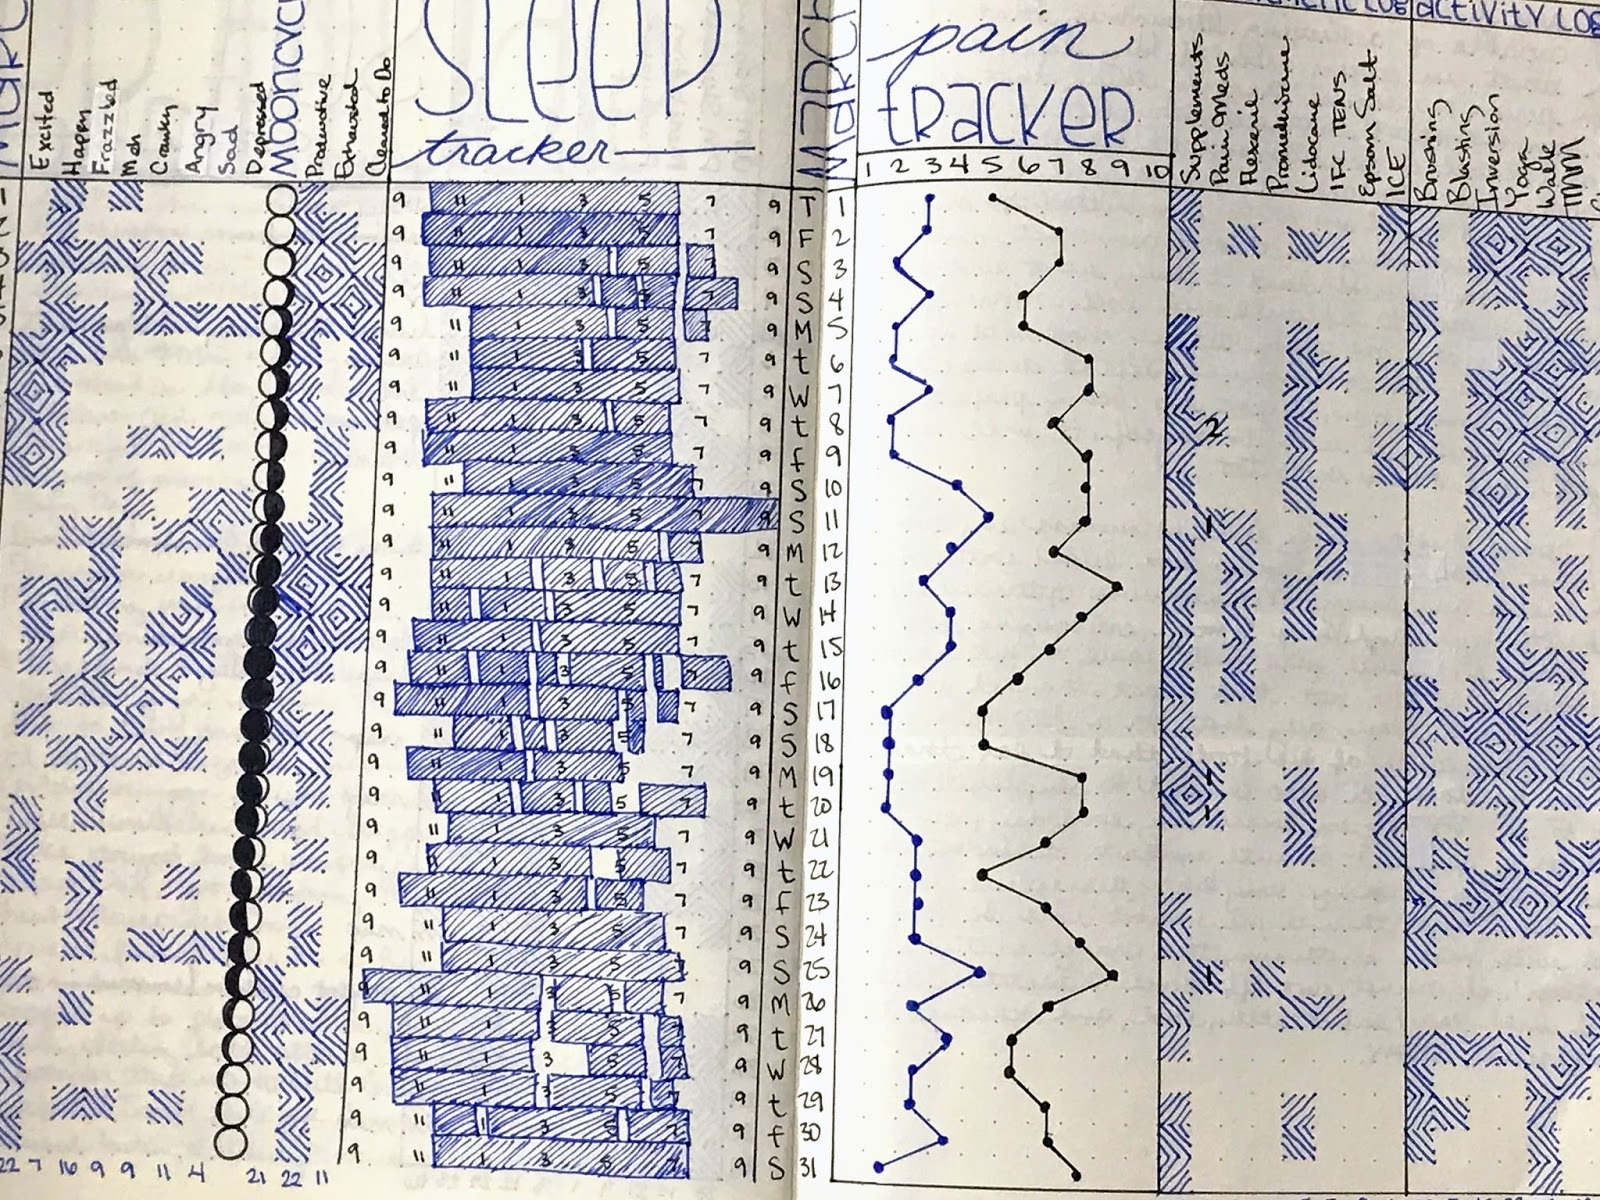 MARCH
Excited
Happy
Frazzled
Meh
Cranky
Angry
Sad
Depressed
MOONCYC
Productive
Exhausted
Cleaned to Do
22 7 16 9 9 11 4 21 22 11
SLEEP
tracker
MARCH
pain
TRACKER
1 2 3 4 5 6 7 8 9 10
9 11 1 3 5 7 9 T 1
9 11 1 3 5 7 9 F 2
9 11 1 3 5 7 9 S 3
9 11 1 3 5 7 9 S 4
9 11 1 3 5 7 9 M 5
9 11 1 3 5 7 9 t 6
9 11 1 3 5 7 9 W 7
9 11 1 3 5 7 9 t 8
9 11 1 3 5 7 9 f 9
9 11 1 3 5 7 9 S 10
9 11 1 3 5 7 9 S 11
9 11 1 3 5 7 9 M 12
9 11 1 3 5 7 9 t 13
9 11 1 3 5 7 9 W 14
9 11 1 3 5 7 9 t 15
9 11 1 3 5 7 9 f 16
9 11 1 3 5 7 9 S 17
9 11 1 3 5 7 9 S 18
9 11 1 3 5 7 9 M 19
9 11 1 3 5 7 9 t 20
9 11 1 3 5 7 9 W 21
9 11 1 3 5 7 9 t 22
9 11 1 3 5 7 9 f 23
9 11 1 3 5 7 9 S 24
9 11 1 3 5 7 9 S 25
9 11 1 3 5 7 9 M 26
9 11 1 3 5 7 9 t 27
9 11 1 3 5 7 9 W 28
9 11 1 3 5 7 9 t 29
9 11 1 3 5 7 9 f 30
9 11 1 3 5 7 9 S 31
Supplements
Pain Meds
Flexeril
Lidocane
IFC TENS
Epsom Salt
ICE
2
1
1
1
1
activity LOG
Brushing
Blasting
Inversion
Yoga
Walk